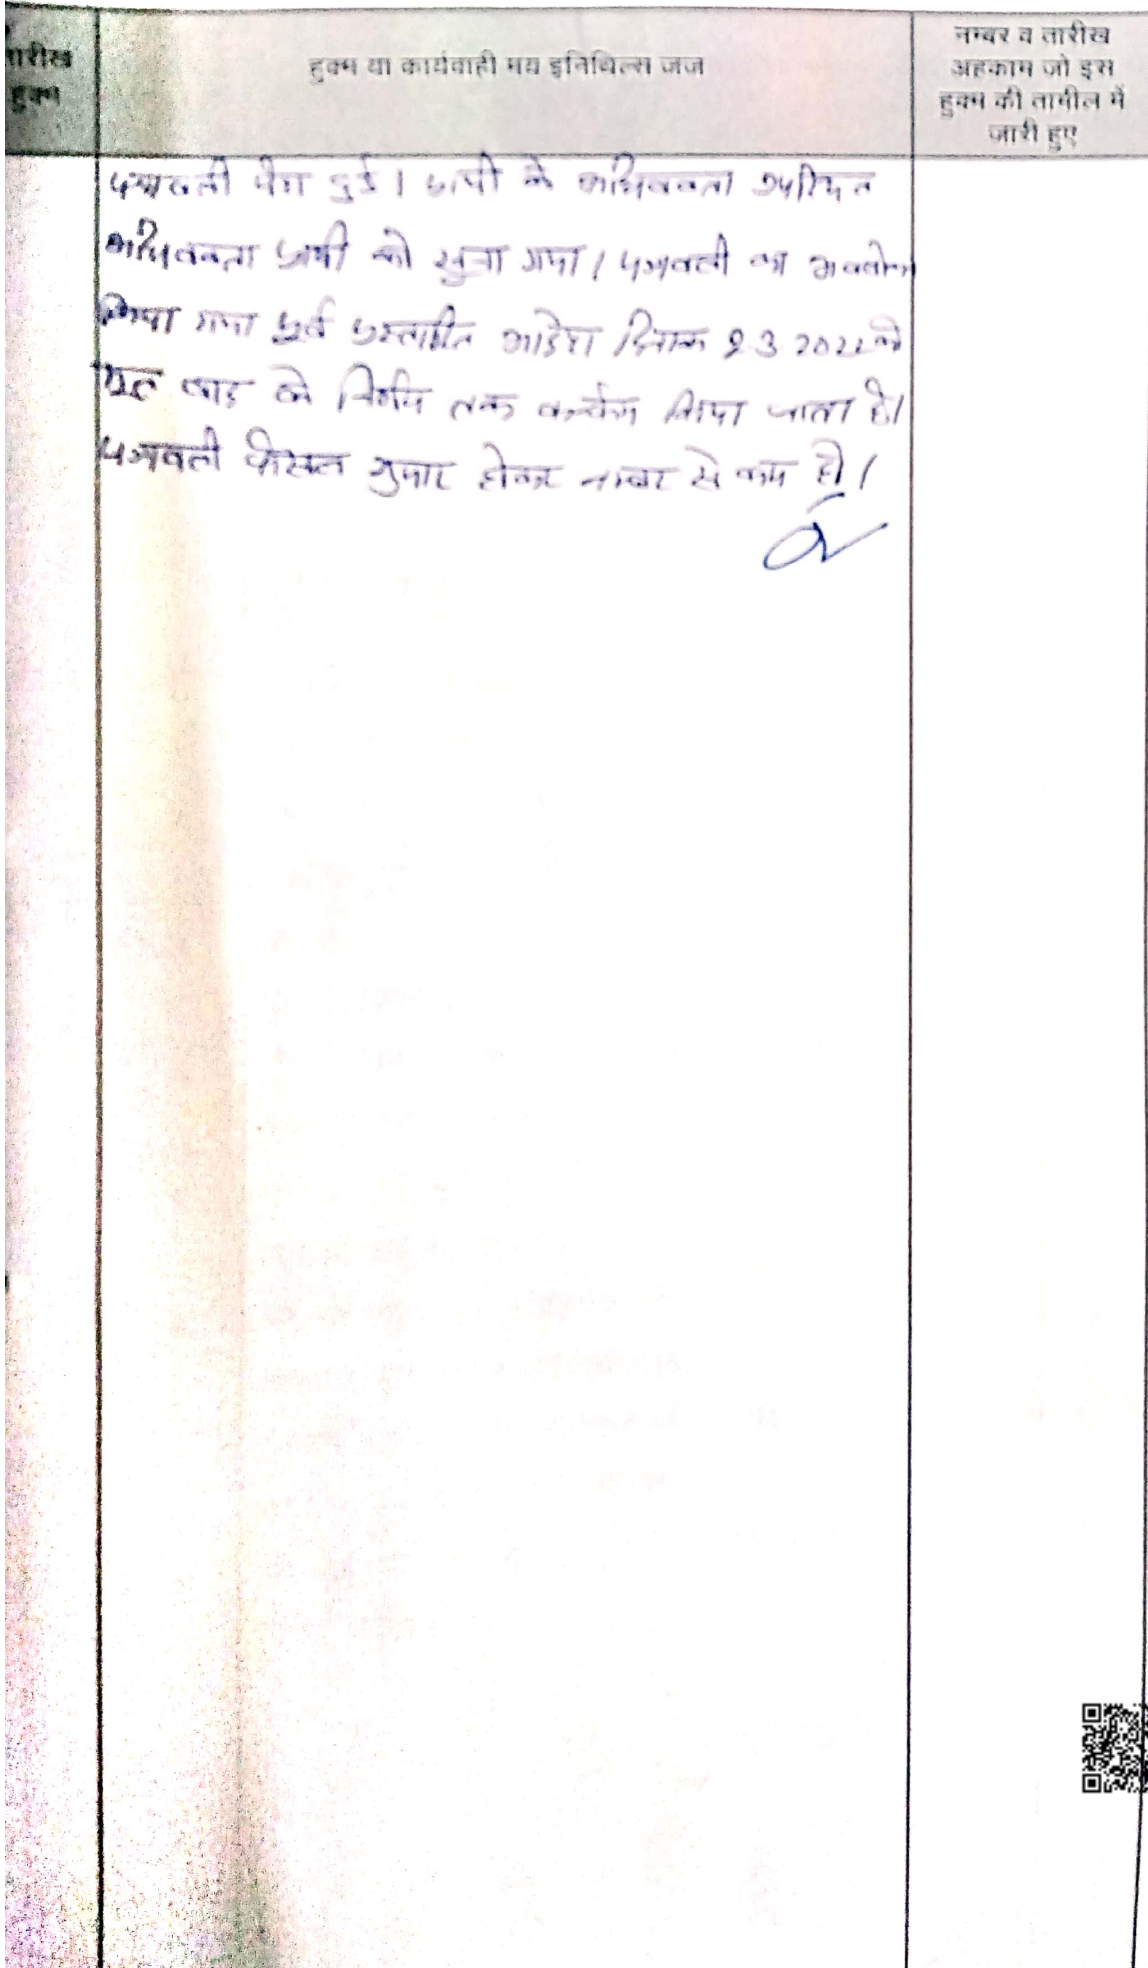 तारीख
हुक्म
हुक्म या कार्यवाही मय इनिथिल्स जज
नम्बर व तारीख
अहकाम जो इस
हुक्म की तामील में
जारी हुए
पत्रावली पेश हुई। प्रार्थी के अधिवक्ता उपस्थित
अधिवक्ता प्रार्थी को सुना गया। पत्रावली का अवलोकन
किया गया पूर्व प्रस्तावित आदेश दिनांक 2022 को
वाद के निर्णय तक कन्फर्म किया जाता है।
पत्रावली फैसल शुमार होकर नम्बर से कम हो।